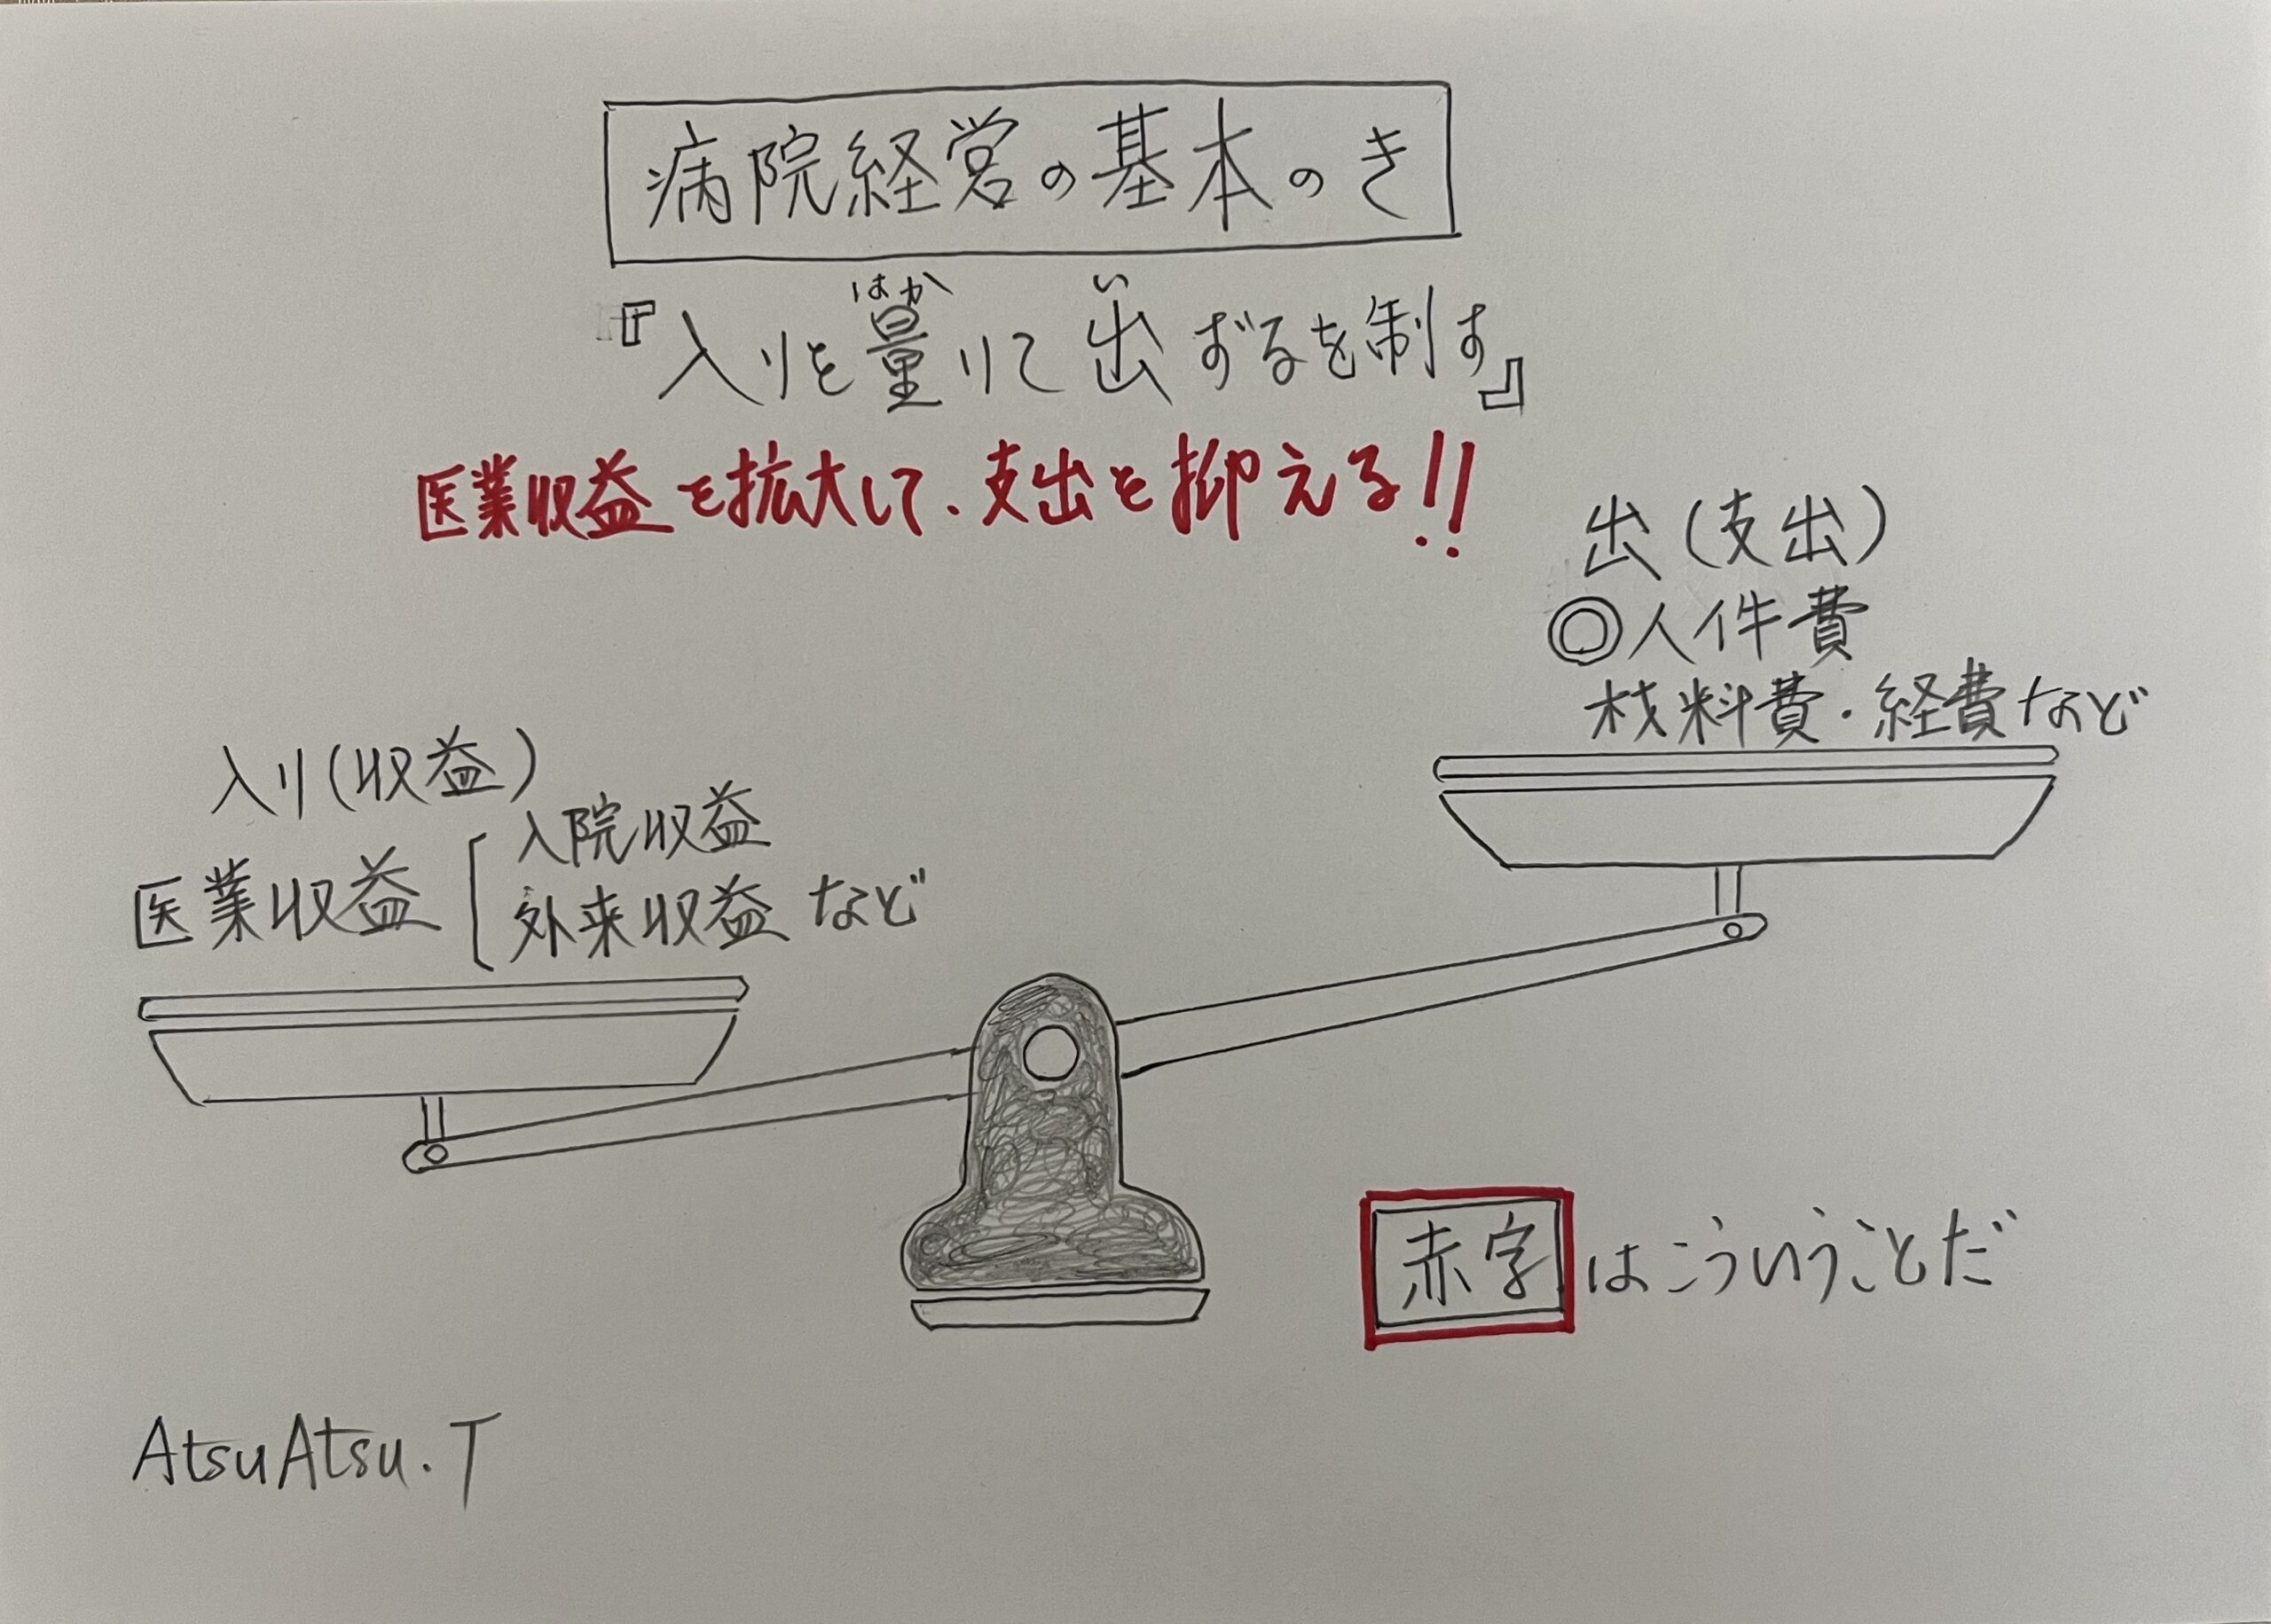 病院経営の基本のき
『入りを量りて出ずるを制す』
はか
い
医業収益を拡大して、支出を抑える!!
出(支出)
◎人件費
材料費・経費など
入り(収益)
医業収益
入院収益
外来収益など
赤字はこういうことだ
AtsuAtsu.T